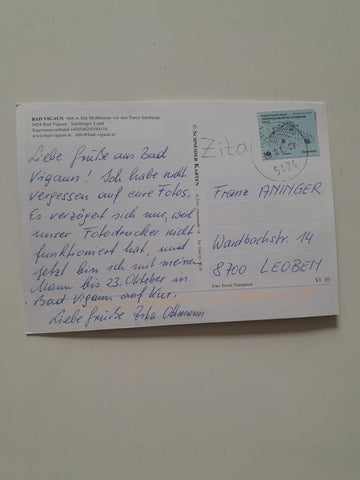 BAD VIGAUN 468 m Die Heiltherme vor den Toren Salzburgs
5424 Bad Vigaun · Salzburger Land
Tourismusverband +43(0)6245/84116
www.bad-vigaun.at info@bad-vigaun.at
Liebe Grüße aus Bad
Vigaun! Ich habe nicht
vergessen auf eure Fotos.
Es verzögert sich nur, weil
unser Fotodrucker nicht
funktioniert hat, und
jetzt bin ich mit meinem
Mann bis 23. Oktober in
Bad Vigaun auf Kur.
Liebe Grüße Zita
© SCHNEIDER KARTEN
Zita
5424
Franz ANINGER
Waidbachstr. 14
8700 LEOBEN
VI 10